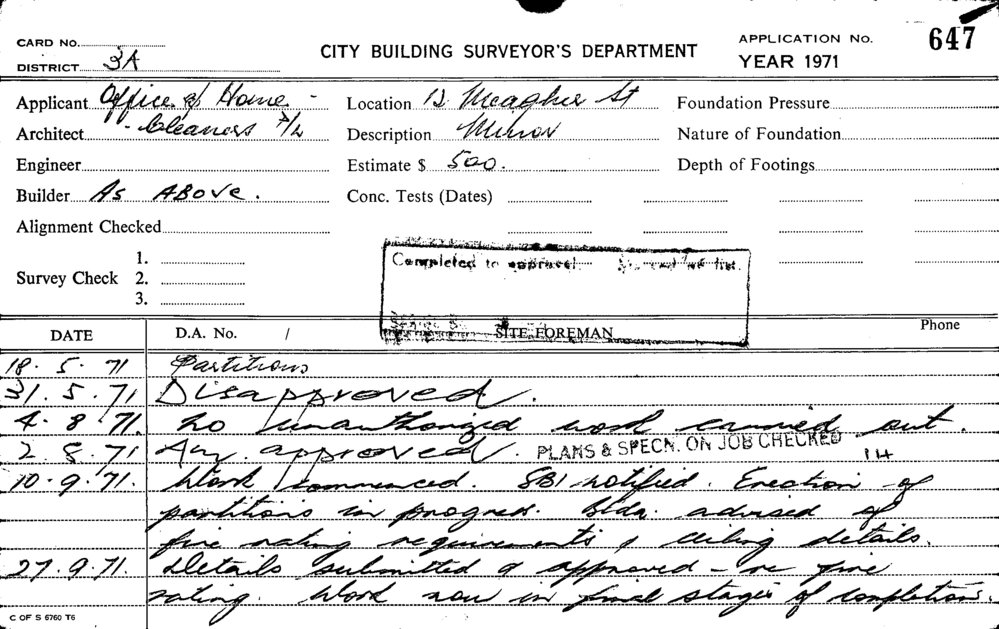 CARD No.
DISTRICT 3A
CITY BUILDING SURVEYOR'S DEPARTMENT
APPLICATION No. 647
YEAR 1971
Applicant Office & Home -
Architect - Cleaners P/L
Engineer
Builder As ABOVE.
Alignment Checked
Survey Check 1.
2.
3.
Location 12 Meagher St
Description Minor
Estimate $ 500.
Conc. Tests (Dates)
Foundation Pressure
Nature of Foundation
Depth of Footings
Completed to approval list.
SITE FOREMAN
Phone
DATE D.A. No. /
18. 5. 71 Partitions
31. 5. 71 Disapproved.
4. 8 71. no unauthorized work carried out.
2. 8. 71 approved. PLANS & SPECN. ON JOB CHECKED 14
10. 9. 71. Work commenced. SBI notified. Erection of
partitions in progress. Bldr. advised of
fire rating requirements & ceiling details.
27. 9. 71. Details submitted & approved - re fire
rating. Work now in final stages of completion.
C OF S 6760 T6